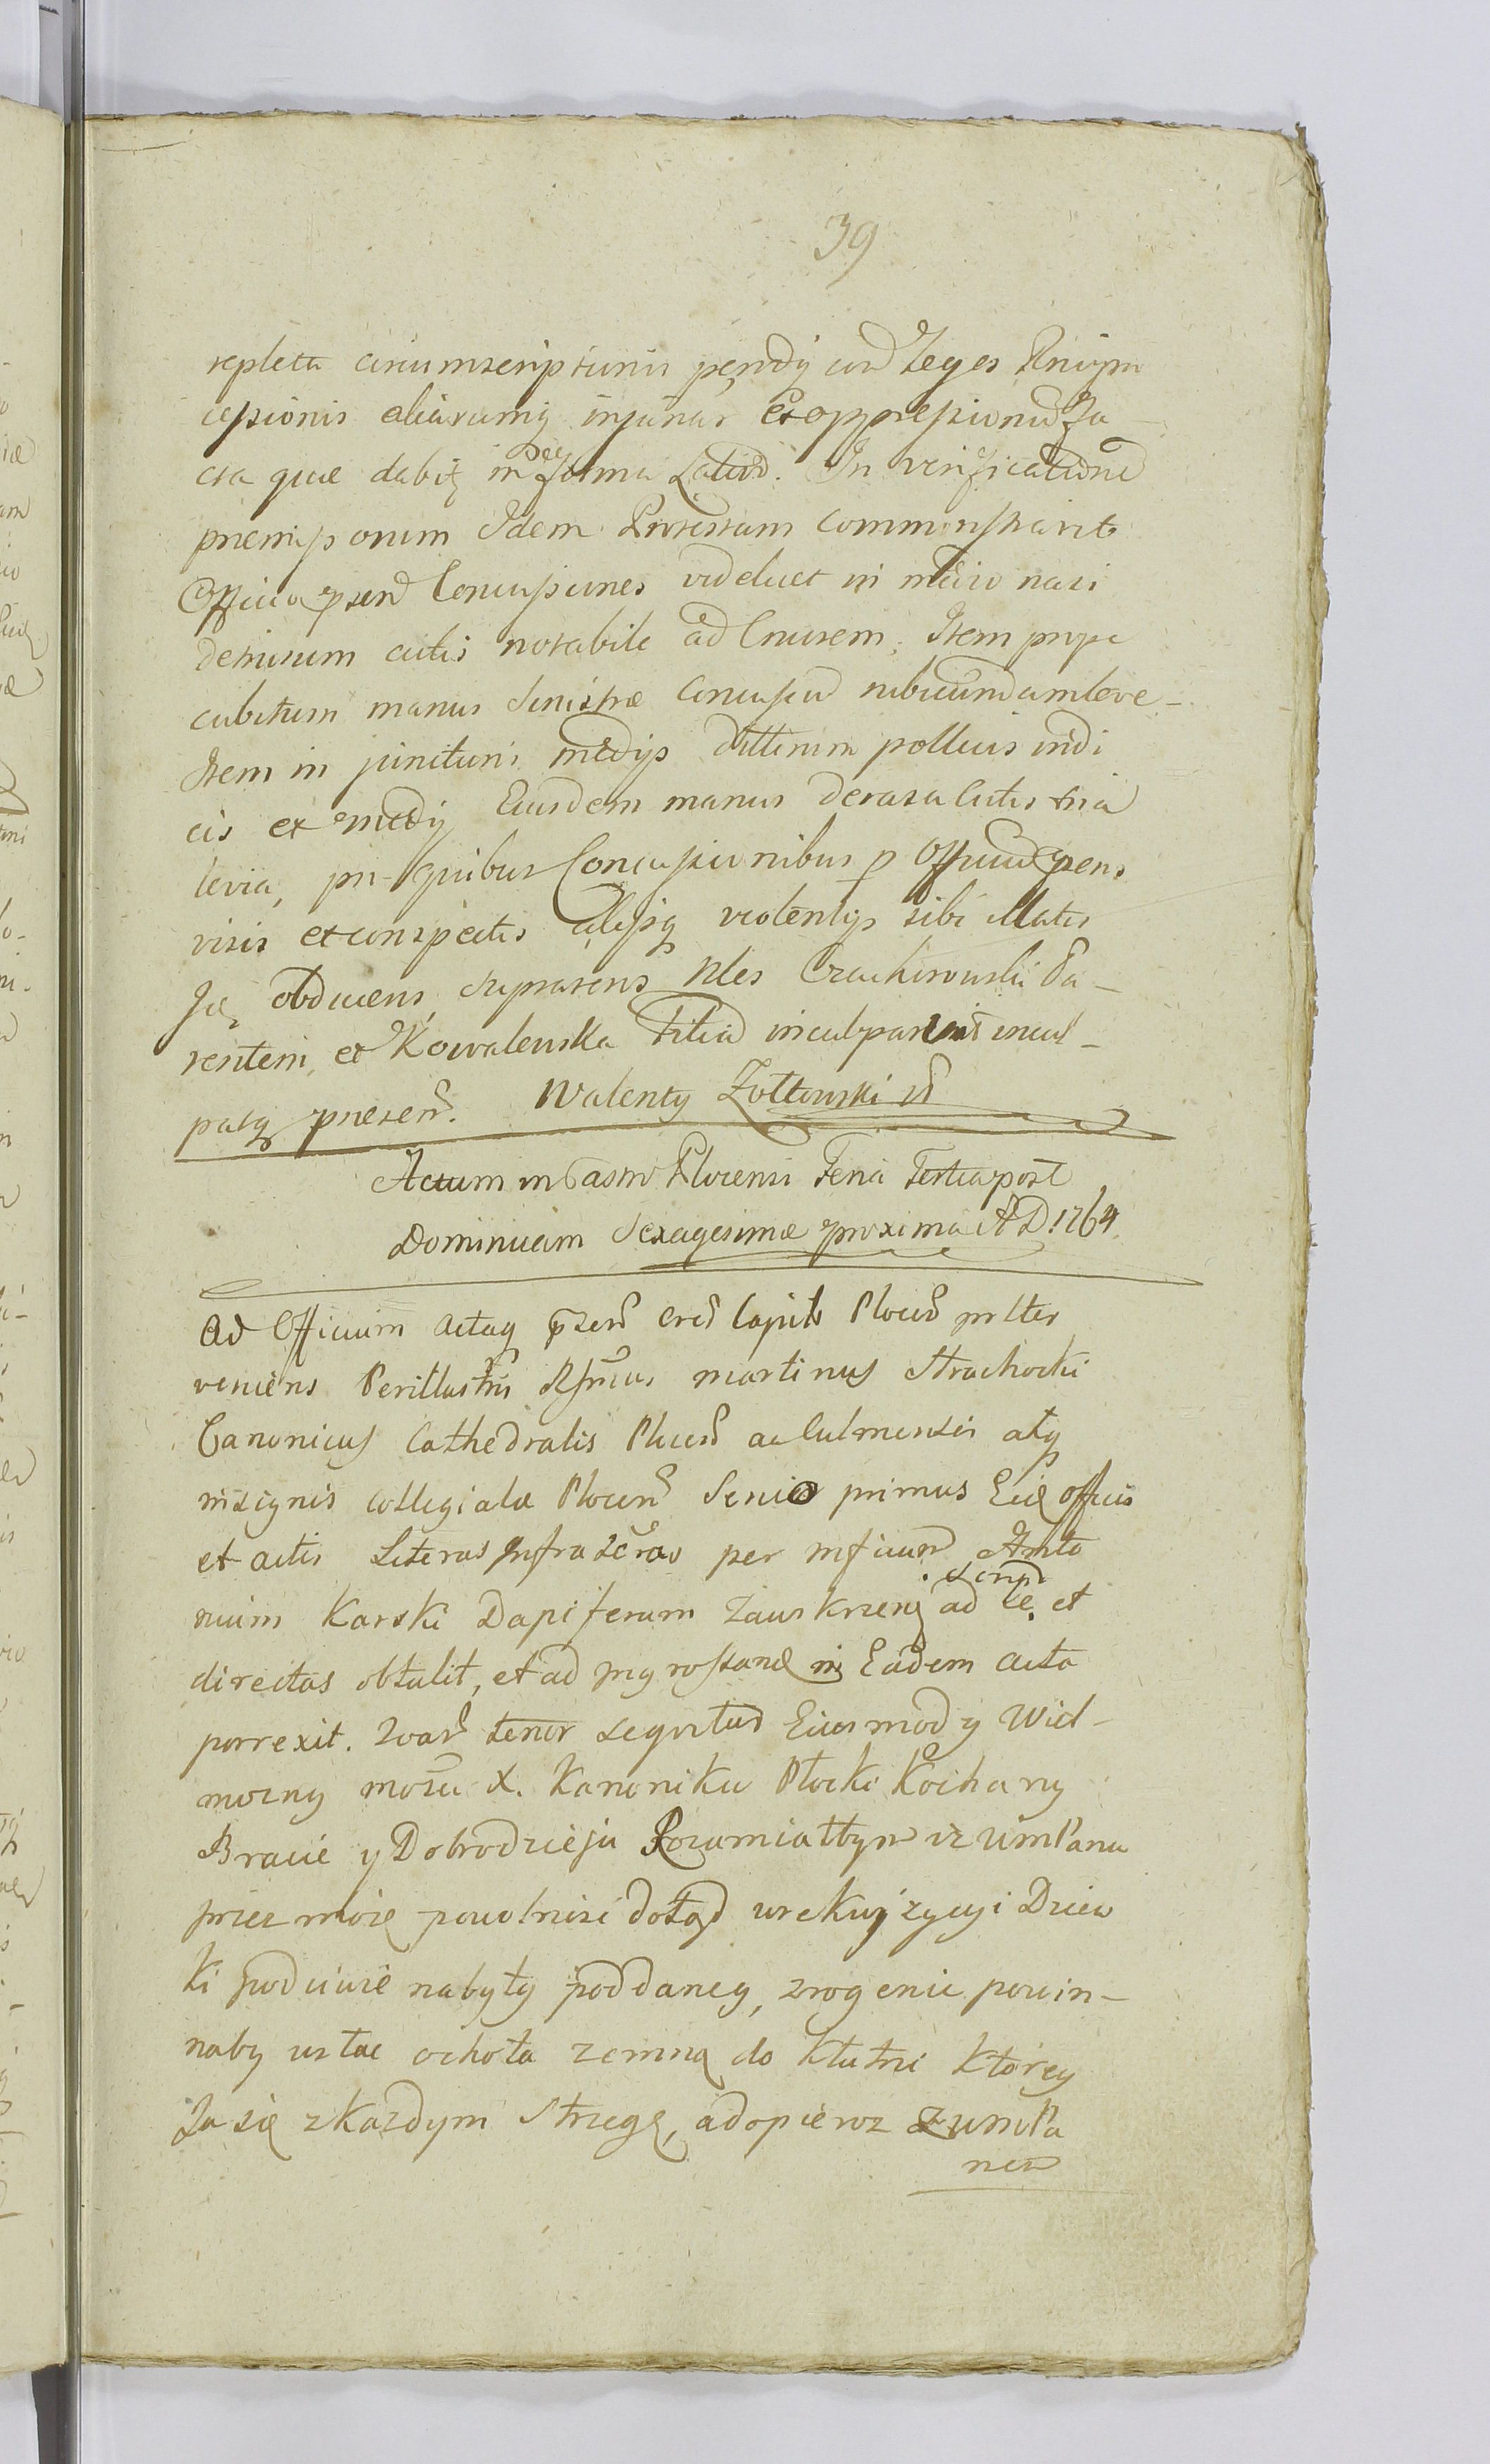 39
repleta circumscriptionis pendÿ con Leges Principm
cessionis aliarumq injuriar et oppressionũ fa
cta quæ dabit in forma Latiũ. In verificationẽ
præmissorum Idem Protestans commonstravit
Officio præsen Concussiones videlicet in medio nasi
detritum cutis notabile ad Cruorem, Item prope
cubitum manus Sinistræ Concussiõ rubicundam leve
Item in juncturis medÿs digitorum pollicis indi
cis et medÿ Eiusdem manus derasa Cutis tria
levia, pro quibus Concussionibus p Officiũ præns
visis et conspectis alÿsq violentÿs sibi illatis
Se obducens, suprascrns Nles Czachorowski Pa-
rentem, et Kowalewska Filiã inculpavit incul-
patq præsen. Walenty Żołtowski
Actum in Castro Plocensi Feria Tertia post
Dominicam Sexagesimæ proxima A D 1764
Ad Officium Actaq præsen Cres Capit Plocen prlter
veniens Perillustris Rssmus Martinus Strachocki
Canonicus Cathedralis Plocen ac Culmensis atq
insignis Collegiatæ Plocen Senior primus Eisq officio
et actis Literas Infrascras per mficum Anto
nium Karski Dapiferum Zawskrzen ad se script et
directas obtulit, et ad ingrossand in Eadem acta
porrexit. Quar tenor sequitur Eiusmodi Wiel-
możny mości X. Kanoniku Płocki Kochany
Bracie y Dobrodzieju Rozumiałbym iż WmPanu
przez moie powolność dotąd w rekwizycyi Dziew
ki podciwie nabyty poddaney, srogenie powin-
naby ustac ochota zemną do kłutni ktorey
Ja się zkazdym Strzegę, adopieroz z WmPa
nem